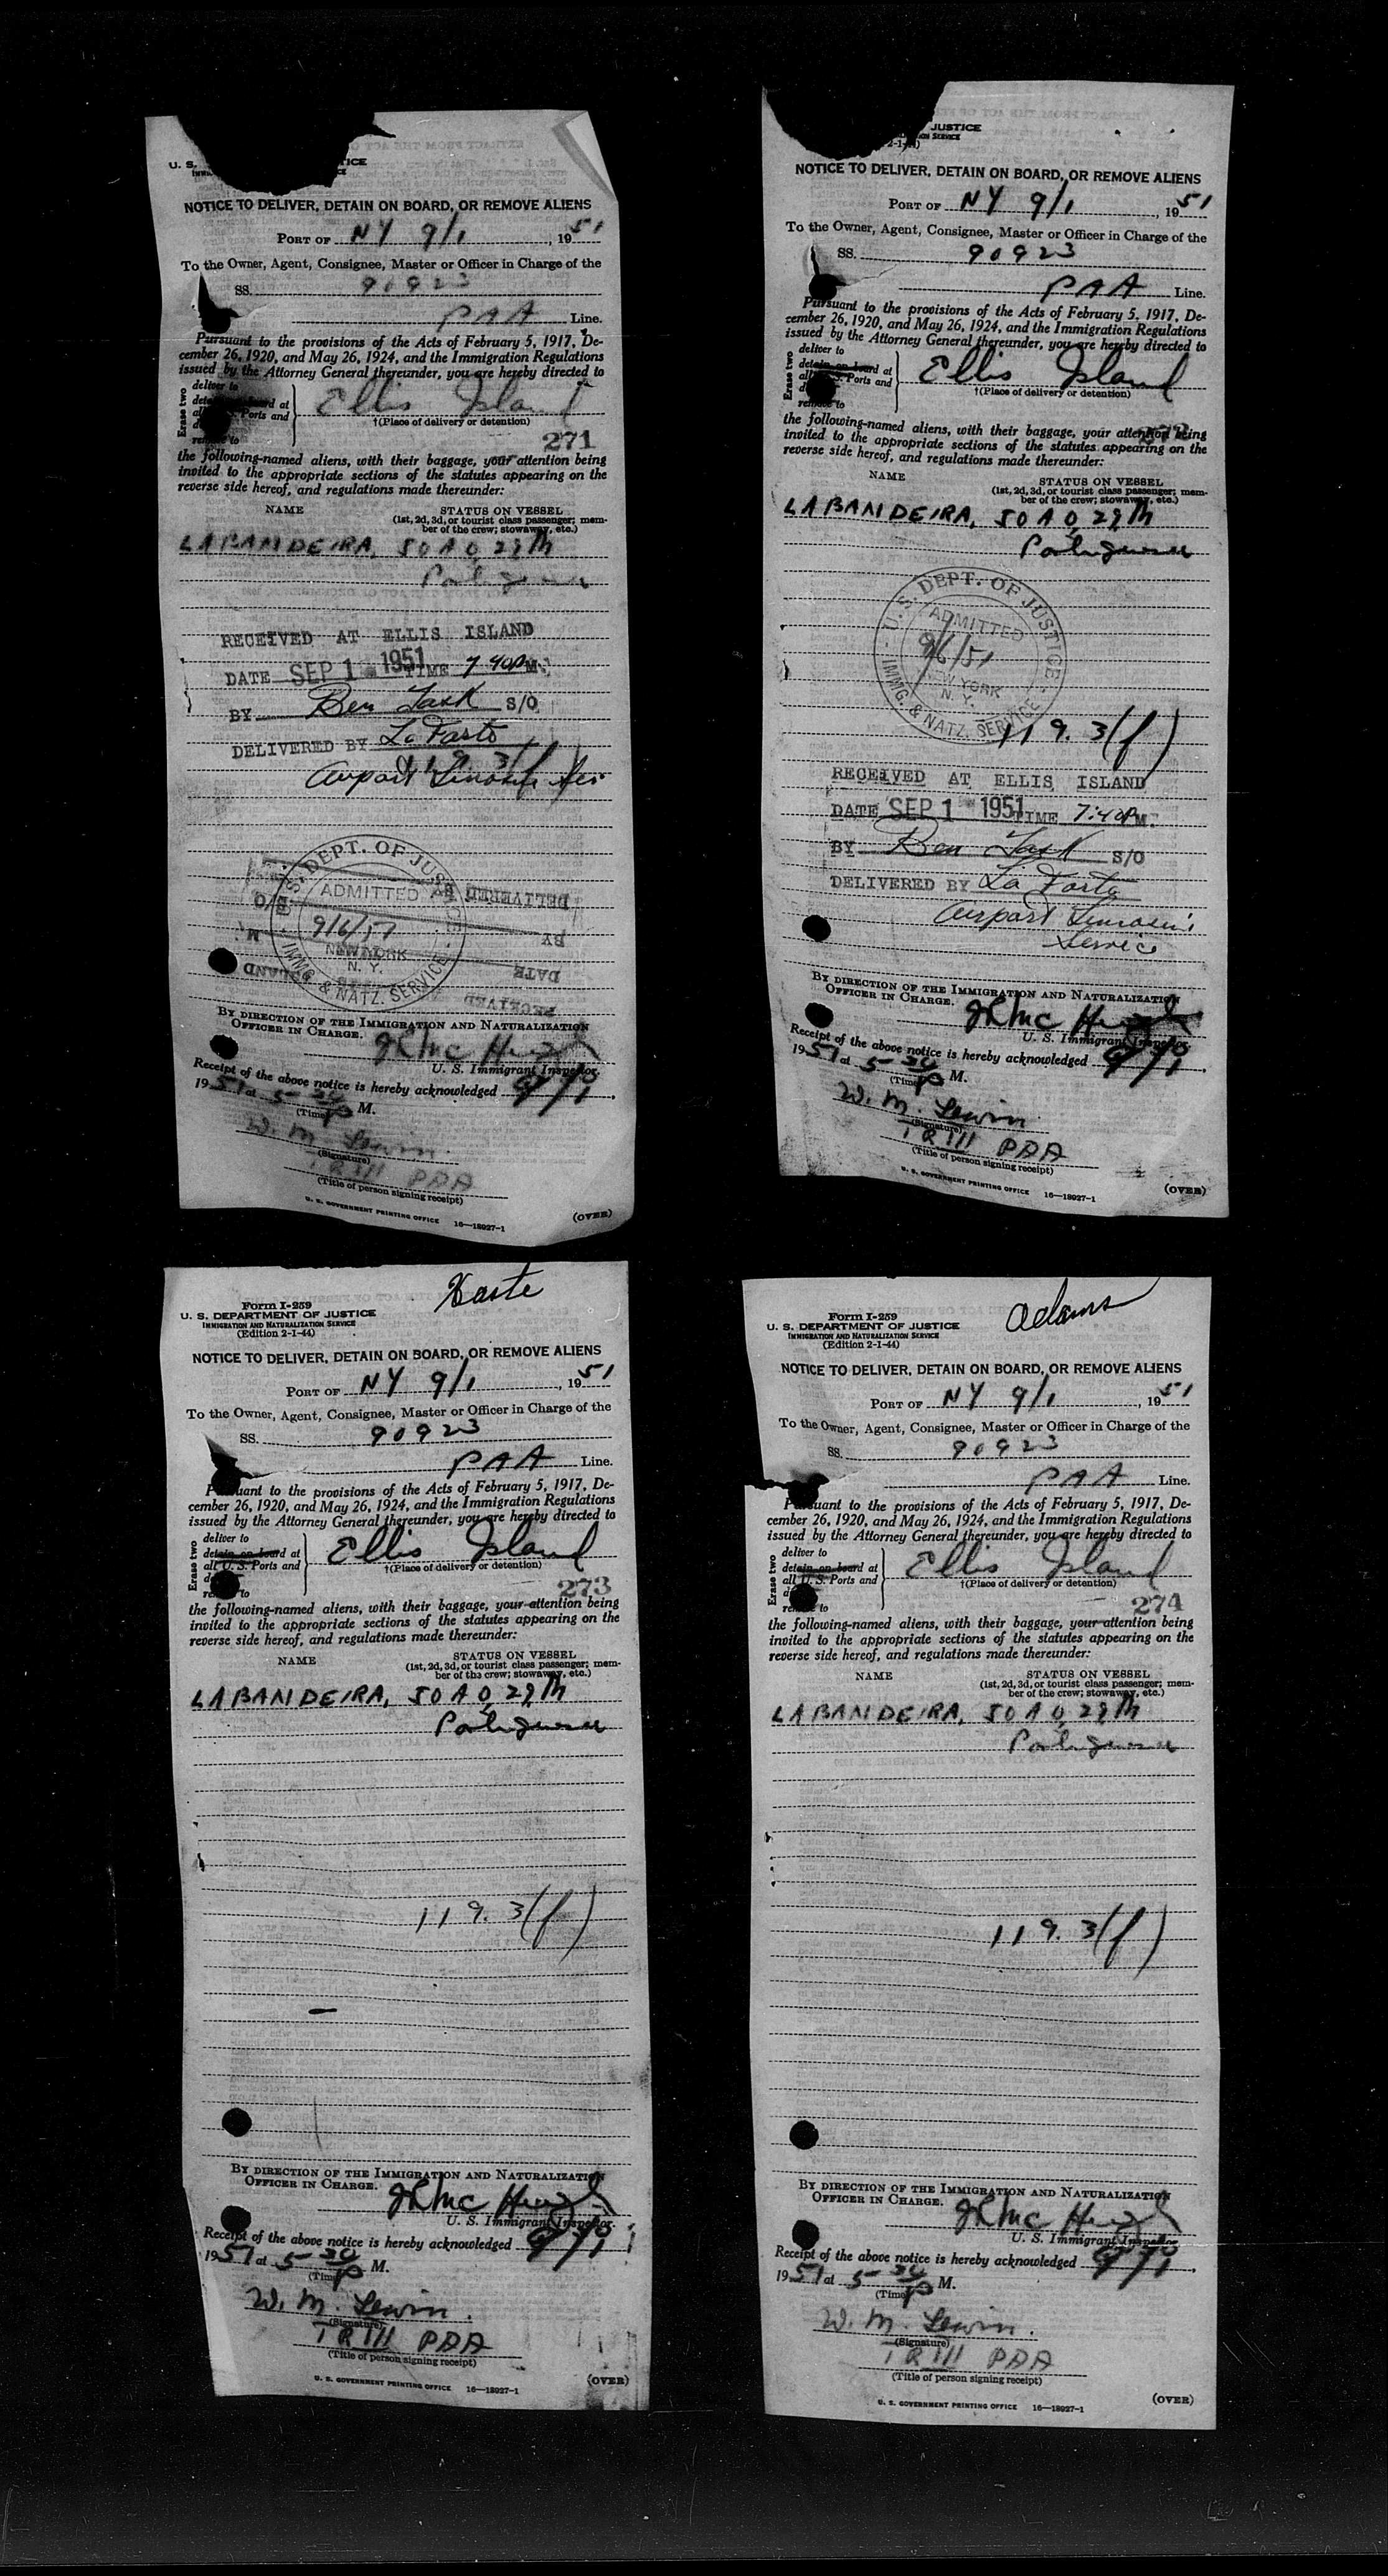 U. S. TICE
NOTICE TO DELIVER, DETAIN ON BOARD, OR REMOVE ALIENS
PORT OF NY 9/1, 1951
To the Owner, Agent, Consignee, Master or Officer in Charge of the
SS. 90923
PAA Line.
Pursuant to the provisions of the Acts of February 5, 1917, De-
cember 26, 1920, and May 26, 1924, and the Immigration Regulations
issued by the Attorney General thereunder, you are hereby directed to
Erase two
deliver to
at
Ports and
Ellis Island
†(Place of delivery or detention)
271
the following-named aliens, with their baggage, your attention being
invited to the appropriate sections of the statutes appearing on the
reverse side hereof, and regulations made thereunder:
NAME STATUS ON VESSEL
(1st, 2d, 3d, or tourist class passenger; mem-
ber of the crew; stowaway, etc.)
LABANDEIRA, JOAO, 29 M
Portuguese
RECEIVED AT ELLIS ISLAND
DATE SEP 1 1951 TIME 7 40 P M.
BY Ben Task S/O
DELIVERED BY La Farto
119. 3(f)
Airport Limousine Ser
U.S. DEPT. OF JUSTICE
ADMITTED
9/6/51
NEW YORK
N. Y.
IMMG. & NATZ. SERVICE
DELIVERED BY
BY
DATE
RECEIVED
BY DIRECTION OF THE IMMIGRATION AND NATURALIZATION
OFFICER IN CHARGE.
U. S. Immigrant Inspector.
Receipt of the above notice is hereby acknowledged 9/1,
1951 at 5 30 P M.
(Time)
W. M. Lewin
(Signature)
PAA
(Title of person signing receipt)
U. S. GOVERNMENT PRINTING OFFICE 16—18027-1
(OVER)
JUSTICE
NOTICE TO DELIVER, DETAIN ON BOARD, OR REMOVE ALIENS
PORT OF NY 9/1, 1951
To the Owner, Agent, Consignee, Master or Officer in Charge of the
SS. 90923
PAA Line.
Pursuant to the provisions of the Acts of February 5, 1917, De-
cember 26, 1920, and May 26, 1924, and the Immigration Regulations
issued by the Attorney General thereunder, you are hereby directed to
Erase two
deliver to
detain on board at
all U.S. Ports and
remove to
Ellis Island
†(Place of delivery or detention)
the following-named aliens, with their baggage, your attention being
invited to the appropriate sections of the statutes appearing on the
reverse side hereof, and regulations made thereunder:
NAME STATUS ON VESSEL
(1st, 2d, 3d, or tourist class passenger; mem-
ber of the crew; stowaway, etc.)
LABANDEIRA, JOAO, 29 M
Portuguese
U.S. DEPT. OF JUSTICE
ADMITTED
9/6/51
NEW YORK
N. Y.
IMMG. & NATZ. SERVICE
119. 3(f)
RECEIVED AT ELLIS ISLAND
DATE SEP 1 1951 TIME 7:40 P M.
BY Ben Task S/O
DELIVERED BY La Farto
Airport Limousine
Service
BY DIRECTION OF THE IMMIGRATION AND NATURALIZATION
OFFICER IN CHARGE.
U. S. Immigrant Inspector.
Receipt of the above notice is hereby acknowledged 9/1,
1951 at 5 30 P M.
(Time)
W. M. Lewin
(Signature)
PAA
(Title of person signing receipt)
U. S. GOVERNMENT PRINTING OFFICE 16—18027-1
(OVER)
Form I-259
U. S. DEPARTMENT OF JUSTICE
IMMIGRATION AND NATURALIZATION SERVICE
(Edition 2-1-44)
NOTICE TO DELIVER, DETAIN ON BOARD, OR REMOVE ALIENS
PORT OF NY 9/1, 1951
To the Owner, Agent, Consignee, Master or Officer in Charge of the
SS. 90923
PAA Line.
Pursuant to the provisions of the Acts of February 5, 1917, De-
cember 26, 1920, and May 26, 1924, and the Immigration Regulations
issued by the Attorney General thereunder, you are hereby directed to
Erase two
deliver to
detain on board at
all U.S. Ports and
remove to
Ellis Island
†(Place of delivery or detention)
273
the following-named aliens, with their baggage, your attention being
invited to the appropriate sections of the statutes appearing on the
reverse side hereof, and regulations made thereunder:
NAME STATUS ON VESSEL
(1st, 2d, 3d, or tourist class passenger; mem-
ber of the crew; stowaway, etc.)
LABANDEIRA, JOAO, 29 M
Portuguese
119. 3(f)
BY DIRECTION OF THE IMMIGRATION AND NATURALIZATION
OFFICER IN CHARGE.
U. S. Immigrant Inspector.
Receipt of the above notice is hereby acknowledged 9/1,
1951 at 5 30 P M.
(Time)
W. M. Lewin.
(Signature)
PAA
(Title of person signing receipt)
U. S. GOVERNMENT PRINTING OFFICE 16—18027-1
(OVER)
Adams
Form I-259
U. S. DEPARTMENT OF JUSTICE
IMMIGRATION AND NATURALIZATION SERVICE
(Edition 2-1-44)
NOTICE TO DELIVER, DETAIN ON BOARD, OR REMOVE ALIENS
PORT OF NY 9/1, 1951
To the Owner, Agent, Consignee, Master or Officer in Charge of the
SS. 90923
PAA Line.
Pursuant to the provisions of the Acts of February 5, 1917, De-
cember 26, 1920, and May 26, 1924, and the Immigration Regulations
issued by the Attorney General thereunder, you are hereby directed to
Erase two
deliver to
detain on board at
all U.S. Ports and
remove to
Ellis Island
†(Place of delivery or detention)
274
the following-named aliens, with their baggage, your attention being
invited to the appropriate sections of the statutes appearing on the
reverse side hereof, and regulations made thereunder:
NAME STATUS ON VESSEL
(1st, 2d, 3d, or tourist class passenger; mem-
ber of the crew; stowaway, etc.)
LABANDEIRA, JOAO, 29 M
Portuguese
119. 3(f)
BY DIRECTION OF THE IMMIGRATION AND NATURALIZATION
OFFICER IN CHARGE.
U. S. Immigrant Inspector.
Receipt of the above notice is hereby acknowledged 9/1,
1951 at 5 30 P M.
(Time)
W. M. Lewin.
(Signature)
PAA
(Title of person signing receipt)
U. S. GOVERNMENT PRINTING OFFICE 16—18027-1
(OVER)